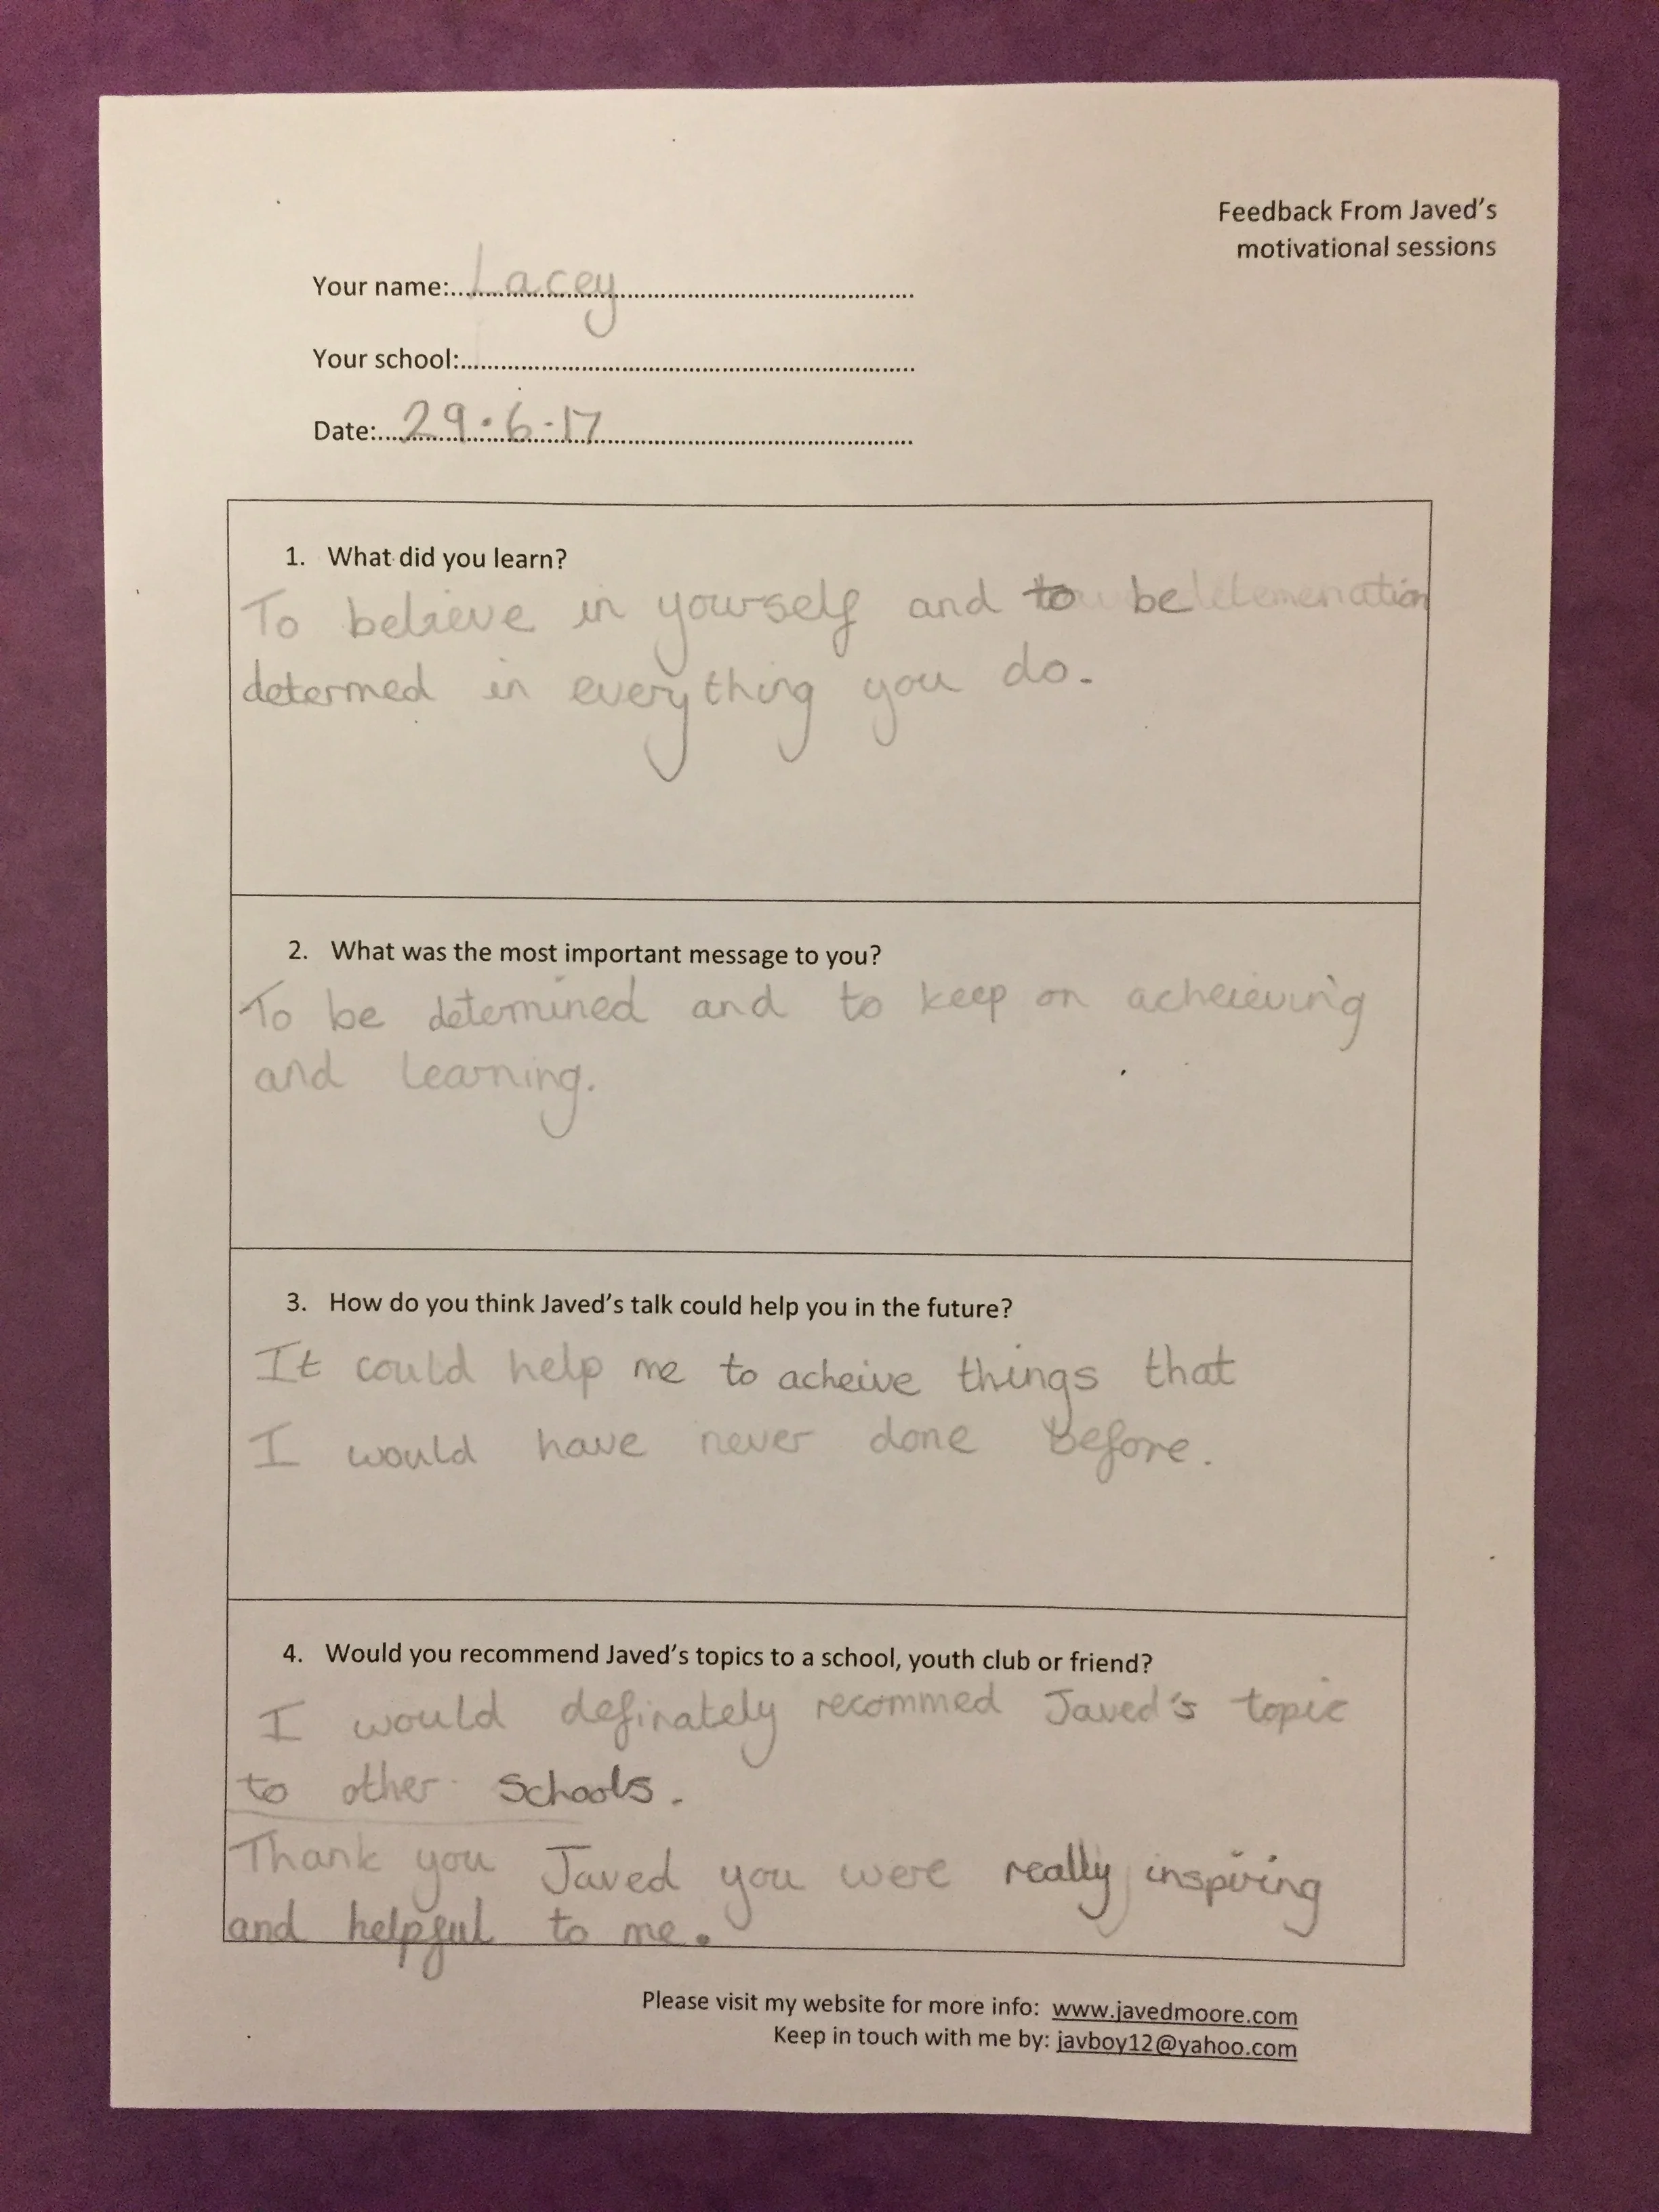 Feedback From Javed's
motivational sessions
Your name:.....Lacey.....
Your school:.....
Date:.....29.6.17.....
1. What did you learn?
To believe in yourself and to be
determed in everything you do.
2. What was the most important message to you?
To be determined and to keep on acheieving
and learning.
3. How do you think Javed's talk could help you in the future?
It could help me to acheive things that
I would have never done Before.
4. Would you recommend Javed's topics to a school, youth club or friend?
I would definately recommed Javed's topic
to other Schools.
Thank you Javed you were really inspiring
and helpful to me.
Please visit my website for more info: www.javedmoore.com
Keep in touch with me by: javboy12@yahoo.com